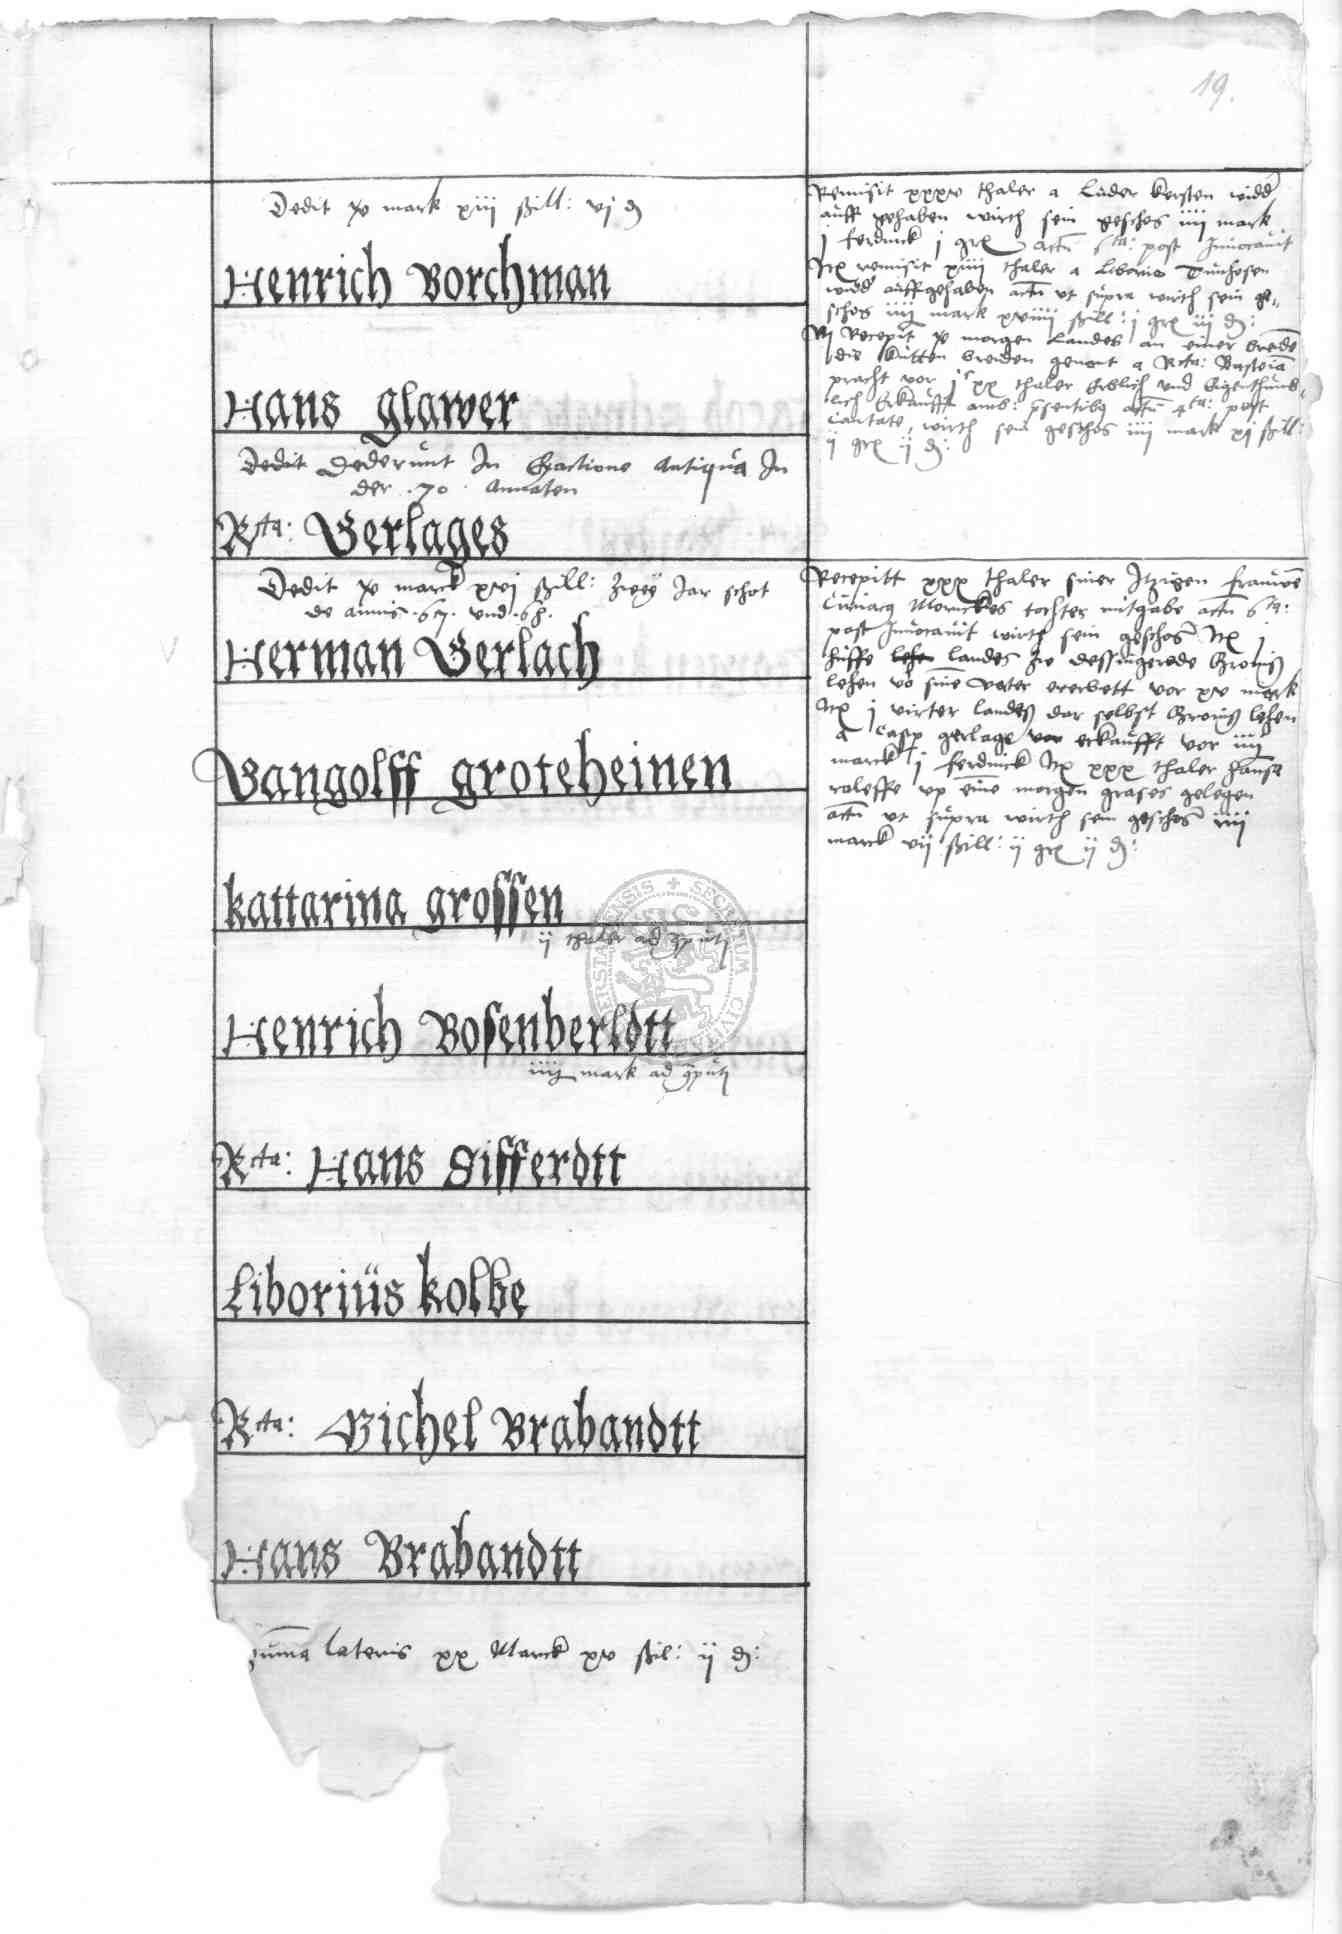 19.
Dedit xv mark xiij ßill: vj d
Henrich Borchman
Hans glawer
Dedit Dederunt In Exactione Antiqua In
der .70. Annaten
Rcta: Gerlages
Dedit xv marck xvj ßill: zwey Jar schot
de annis .67. und .68.
Herman Gerlach
Gangolff groteheinen
kattarina grossen
ij thaler ad
Henrich Bosenberldtt
iiij mark ad
Rcta: Hans Sifferdtt
Liborius kolbe
Rcta: Michel Brabandtt
Hans Brabandtt
Summa lateris xx Marck xv ßil: ij d:
Remisit xxxv thaler a Luder kersten widd
auff gehaben wirth sein geschos iiij mark
j ferdinck j gr actu 6ta: post Invocavit
It remisit xiiij thaler a Liborio
widd auffgehaben actu ut supra wirth sein ge=
schos iiij mark xviiij ßill: j gr iij d:
Recepit xv morgen Landes an einer breide
die breiden genant a Rcta:
pracht vor jc xx thaler Erblich und Eigenthumb=
lich Erkaufft amb: presentibus actu 4ta: post
Cantate, wirth sein geschos iiij mark xj ßill:
ij gr ij d:
Recepitt xxx thaler siner Itzigen frauwen
Morickes tochter mitgabe actu 6ta:
post Invocavit wirth sein geschos It j
huffe lehen landes zu
lehen vo sine vater ererbett vor xv mark
It j virter landeß dar selbst lehen
a Casp gerlage vor erkaufft vor iiij
marck j ferdinck It xxx thaler Hanse
up eine morgen grases gelegen
actu ut supra wirth sein geschos iiij
marck vij ßill: ij gr ij d:
SECRETUM CIVI